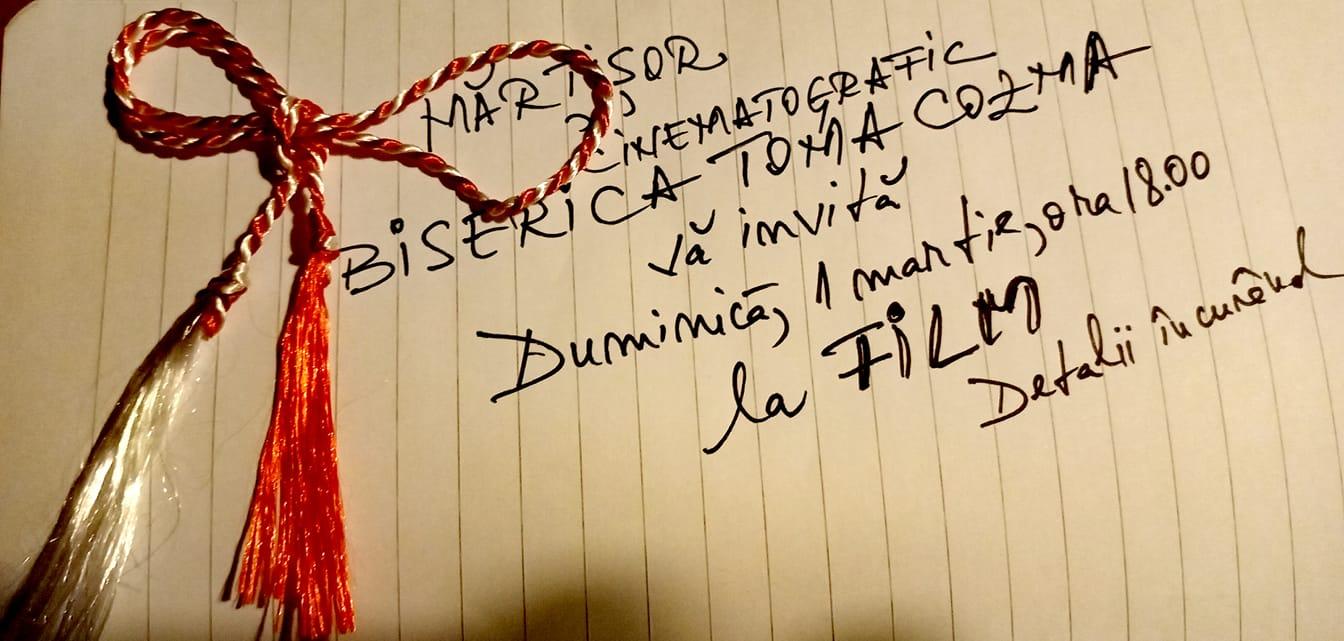 MĂRȚIȘOR
CINEMATOGRAFIC
BISERICA TOMA COZMA
vă invită
Duminică, 1 martie, ora 18.00
la FILM
Detalii în curând